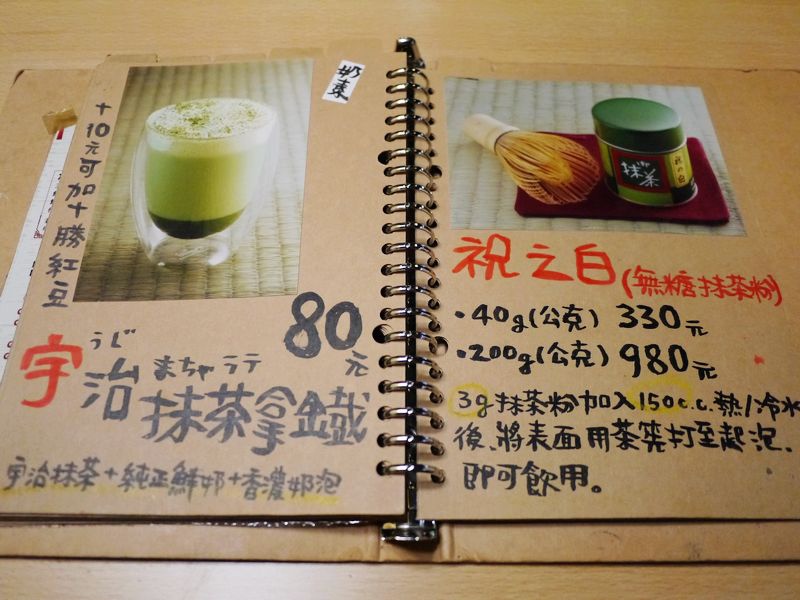 奶素
+10元可加十勝紅豆
80元
うじ まちゃラテ
宇治抹茶拿鐵
宇治抹茶+純正鮮奶+香濃奶泡
抹茶
祝之白(無糖抹茶粉)
・40g(公克) 330元
・200g(公克) 980元
3g抹茶粉加入150c.c.熱/冷水
後、將表面用茶筅打至起泡,
即可飲用。